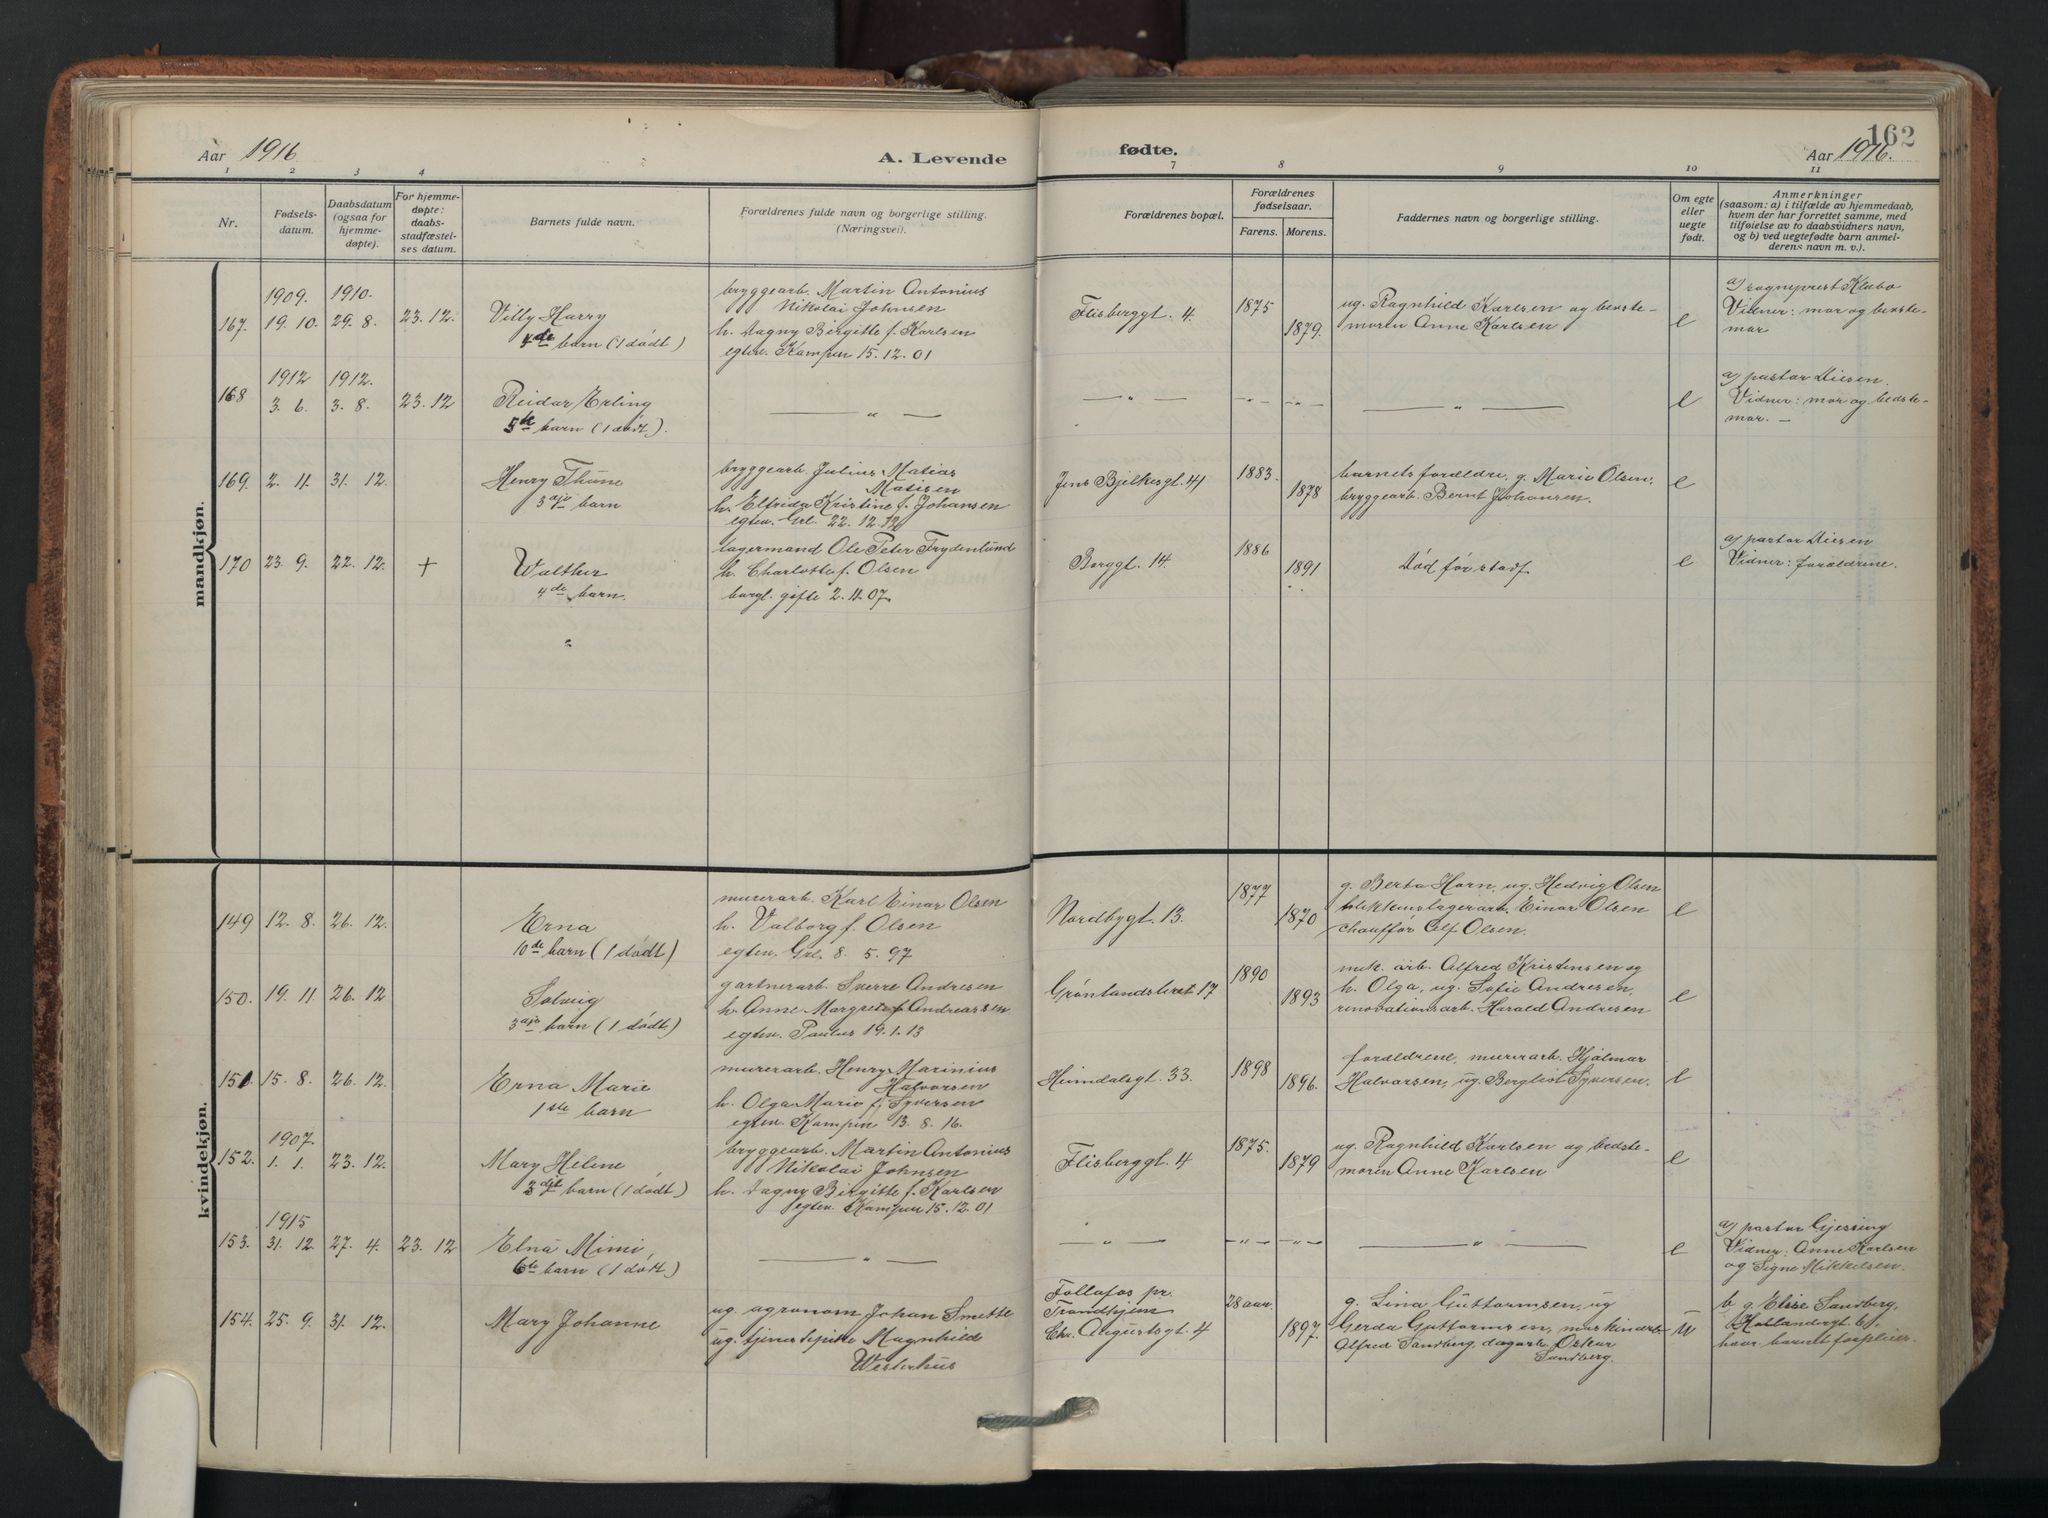 Aar 1916
A. Levende
1 2 3 4
Nr.
Fødsels-
datum.
Daabsdatum
(ogsaa for
hjemme-
døpte).
For hjemme-
døpte:
daabs-
stadfæstel-
ses datum.
Barnets fulde navn.
Forældrenes fulde navn og borgerlige stilling.
(Næringsvei).
mandkjøn.
167.
1909.
19. 10.
1910.
29. 8.
23. 12.
Villy Harry
4de barn (1 dødt)
bryggearb. Martin Antonius
Nikolai Johnsen
h. Dagny Birgitte f. Karlsen
egtev. Kampen 15. 12. 01
168
1912
3. 6.
1912.
3. 8.
23. 12
Reidar Erling
5de barn (1 dødt).
— „ —
169.
2. 11.
31. 12.
Henry Thune
3dje barn
bryggearb. Julius Matias
Matisen
h. Elfrida Kristine f. Johansen
egtev. Grl. 22. 12.
170
23. 9.
22. 12.
+
Walther
4de barn.
lagermand Ole Peter Frydenlund
h. Charlotte f. Olsen
borgl. gifte 2. 11. 07.
„
kvindekjøn.
149
12. 8.
26. 12.
Erna
10de barn (1 dødt)
murerarb. Karl Einar Olsen
h. Valborg f. Olsen
egtev. Grl. 8. 5. 97
150.
19. 11.
26. 12
Solveig
3dje barn (1 dødt)
gartnerarb. Sverre Andresen
h. Anne Margrete f. Andreassen
egtev. Paulus 19. 1. 13
151.
15. 8.
26. 12.
Erna Marie
1ste barn
murerarb. Henry Marinius
Halvorsen
h. Olga Marie f. Syversen
egtev. Kampen 13. 8. 16.
152.
1907.
1. 1.
23. 12.
Mary Helene
3dje barn (1 dødt)
bryggearb. Martin Antonius
Nikolai Johnsen
h. Dagny Birgitte f. Karlsen
egtev. Kampen 15. 12. 01
153.
1915
31. 12.
27. 4.
23. 12
Elna Mimi,
6te barn (1 dødt)
— „ —
154.
25. 9.
31. 12.
Mary Johanne
ug. agronom Johan Smette
ug. tjenestepike Magnhild
Westerhus
fødte.
162
Aar 1916.
7 8 9 10 11
Forældrenes bopæl.
Forældrenes
fødselsaar.
Farens. Morens.
Faddernes navn og borgerlige stilling.
Om egte
eller
uegte
født.
Anmerkninger
(saasom: a) i tilfælde av hjemmedaab,
hvem der har forrettet samme, med
tilføielse av to daabsvidners navn,
og b) ved uegtefødte barn anmel-
derens navn m. v.).
Flisberggt. 4
1875
1879.
ug. Ragnhild Karlsen og bedste-
moren Anne Karlsen
e
a) sogneprest Klabo
Vidner: mor og bedste-
mor
— „ —
— „ —
— „ —
— „ —
e
a) pastor Diesen.
Vidner: mor og bedste-
mor. —
Jens Bjelkesgt. 41
1883.
1878
barnets forældre, g. Marie Olsen,
bryggearb. Bernt Johansen.
e
Borggt. 14.
1886
1891
Død før stadf.
e
a) pastor Diesen
Vidner: forældrene.
Nordbygt. 13.
1877
1870
g. Berta Horn, ug. Hedvig Olsen
blikkenslagerarb. Einar Olsen
chauffør Alf Olsen.
e
Grønlandsleret 17
1890
1893
mek. arb. Alfred Kristensen og
h. Olga, ug. Sofie Andresen,
renovationsarb. Harald Andresen
e
Heimdalsgt. 33.
1898
1896.
forældrene, murerarb. Hjalmar
Halvorsen, ug. Bergliot Syversen.
e
Flisberggt. 4
1875.
1879
ug. Ragnhild Karlsen og bedste-
moren Anne Karlsen
e
— „ —
— „ —
— „ —
— „ —
e
a) pastor Gjessing
Vidner: Anne Karlsen
og Signe Mikkelsen.
Follafos pr.
Trondhjem
Chr. Augustsgt. 4
28 aar.
1897.
g. Lina Guttormsen, ug
Gerda Guttormsen, maskinarb.
Alfred Sandberg, dagarb. Oskar
Sandberg.
u
b g. Elise Sandberg,
Hollandergt. 6,
hvor barnet forpleies.